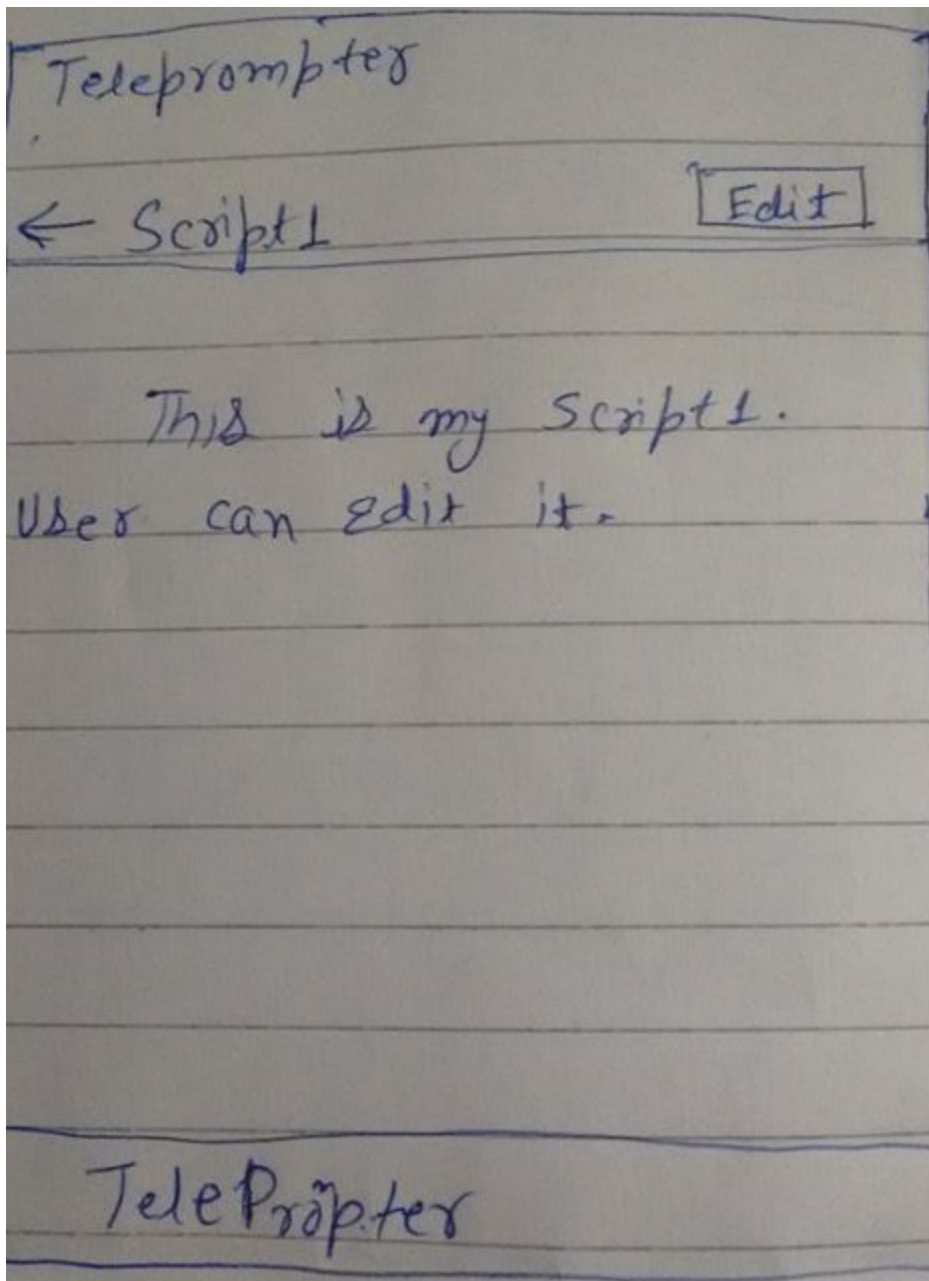 Teleprompter
← Script1 Edit
This is my Script1.
User can Edit it.
TelePrompter